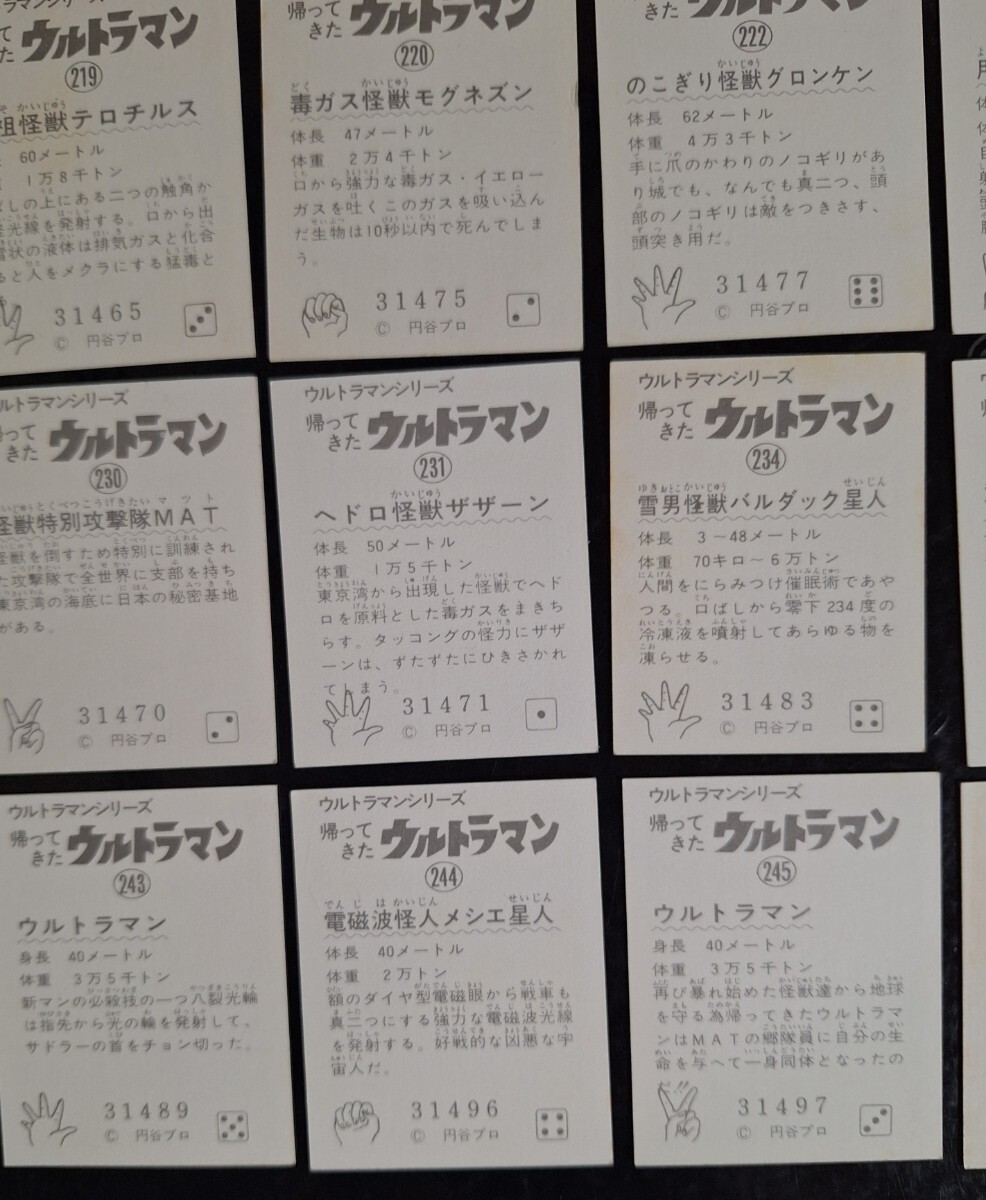 ラマンシリーズ
ウルトラマン
219
祖怪獣テロチルス
60メートル
1万8千トン
ばしの上にある二つの触角か
怪光線を発射する。口から出
雪状の液体は排気ガスと化合
ると人をメクラにする猛毒と
31465
© 円谷プロ
帰って
きた ウルトラマン
220
毒ガス怪獣モグネズン
体長 47メートル
体重 2万4千トン
口から強力な毒ガス・イエロー
ガスを吐くこのガスを吸い込ん
だ生物は10秒以内で死んでしま
う。
31475
© 円谷プロ
帰って
きた ウルトラマン
222
のこぎり怪獣グロンケン
体長 62メートル
体重 4万3千トン
手に爪のかわりのノコギリがあ
り城でも、なんでも真二つ、頭
部のノコギリは敵をつきさす、
頭突き用だ。
31477
© 円谷プロ
ルトラマンシリーズ
帰って
きた ウルトラマン
230
怪獣特別攻撃隊MAT
怪獣を倒すため特別に訓練され
た攻撃隊で全世界に支部を持ち
東京湾の海底に日本の秘密基地
がある。
31470
© 円谷プロ
ウルトラマンシリーズ
帰って
きた ウルトラマン
231
ヘドロ怪獣ザザーン
体長 50メートル
体重 1万5千トン
東京湾から出現した怪獣でヘド
ロを原料とした毒ガスをまきち
らす。タッコングの怪力にザザ
ーンは、ずたずたにひきさかれ
てしまう。
31471
© 円谷プロ
ウルトラマンシリーズ
帰って
きた ウルトラマン
234
雪男怪獣バルダック星人
体長 3～48メートル
体重 70キロ～6万トン
人間をにらみつけ催眠術であや
つる。口ばしから零下234度の
冷凍液を噴射してあらゆる物を
凍らせる。
31483
© 円谷プロ
ウルトラマンシリーズ
帰って
きた ウルトラマン
243
ウルトラマン
身長 40メートル
体重 3万5千トン
新マンの必殺技の一つ八裂光輪
は指先から光の輪を発射して、
サドラーの首をチョン切った。
31489
© 円谷プロ
ウルトラマンシリーズ
帰って
きた ウルトラマン
244
電磁波怪人メシエ星人
体長 40メートル
体重 2万トン
額のダイヤ型電磁眼から戦車も
真二つにする強力な電磁波光線
を発射する。好戦的な凶悪な宇
宙人だ。
31496
© 円谷プロ
ウルトラマンシリーズ
帰って
きた ウルトラマン
245
ウルトラマン
身長 40メートル
体重 3万5千トン
再び暴れ始めた怪獣達から地球
を守る為帰ってきたウルトラマ
ンはMATの郷隊員に自分の生
命を与へて一身同体となったの
31497
© 円谷プロ